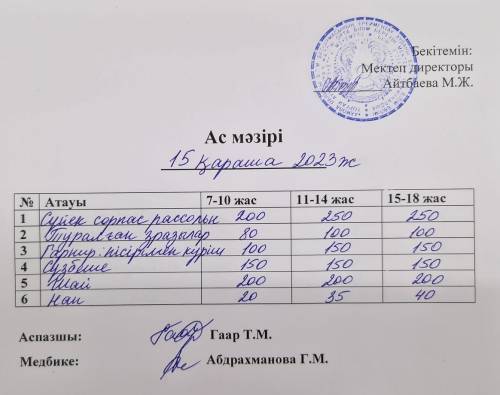 Бекітемін:
Мектеп директоры
Айтбаева М.Ж.
Ас мәзірі
15 қараша 2023ж
№ Атауы 7-10 жас 11-14 жас 15-18 жас
1 Сүйек сорпас рассольн 200 250 250
2 Туралған зразылар 80 100 100
3 Гарнир: пісірілмен күріш 100 150 150
4 Сүзбеше 150 150 150
5 Шай 200 200 200
6 Нан 20 35 40
Аспазшы: Гаар Т.М.
Медбике: Абдрахманова Г.М.